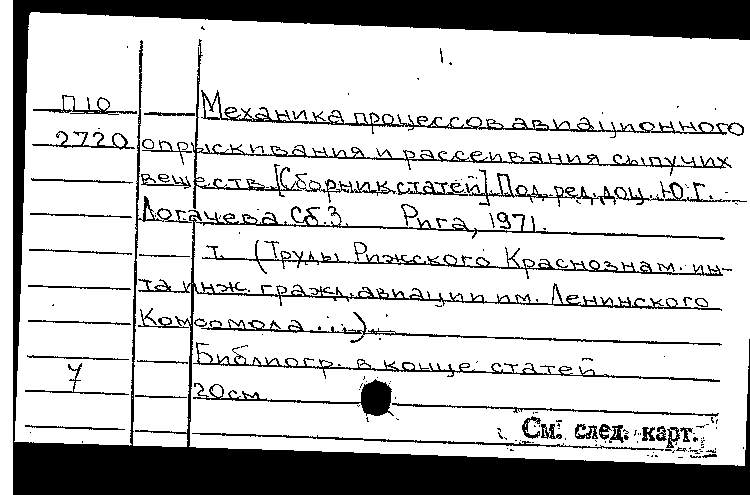 1.
П10 Механика процессов авиационного
2720 опрыскивания и рассеивания сыпучих
веществ. [Сборник статей]. Под. ред. доц. Ю.Г.
Логачева. Сб.3. Рига, 1971.
т. (Труды Рижского Краснознам. ин-
та инж. гражд. авиации им. Ленинского
Комсомола...).
Библиогр. в конце статей
7 20см
См. след. карт.